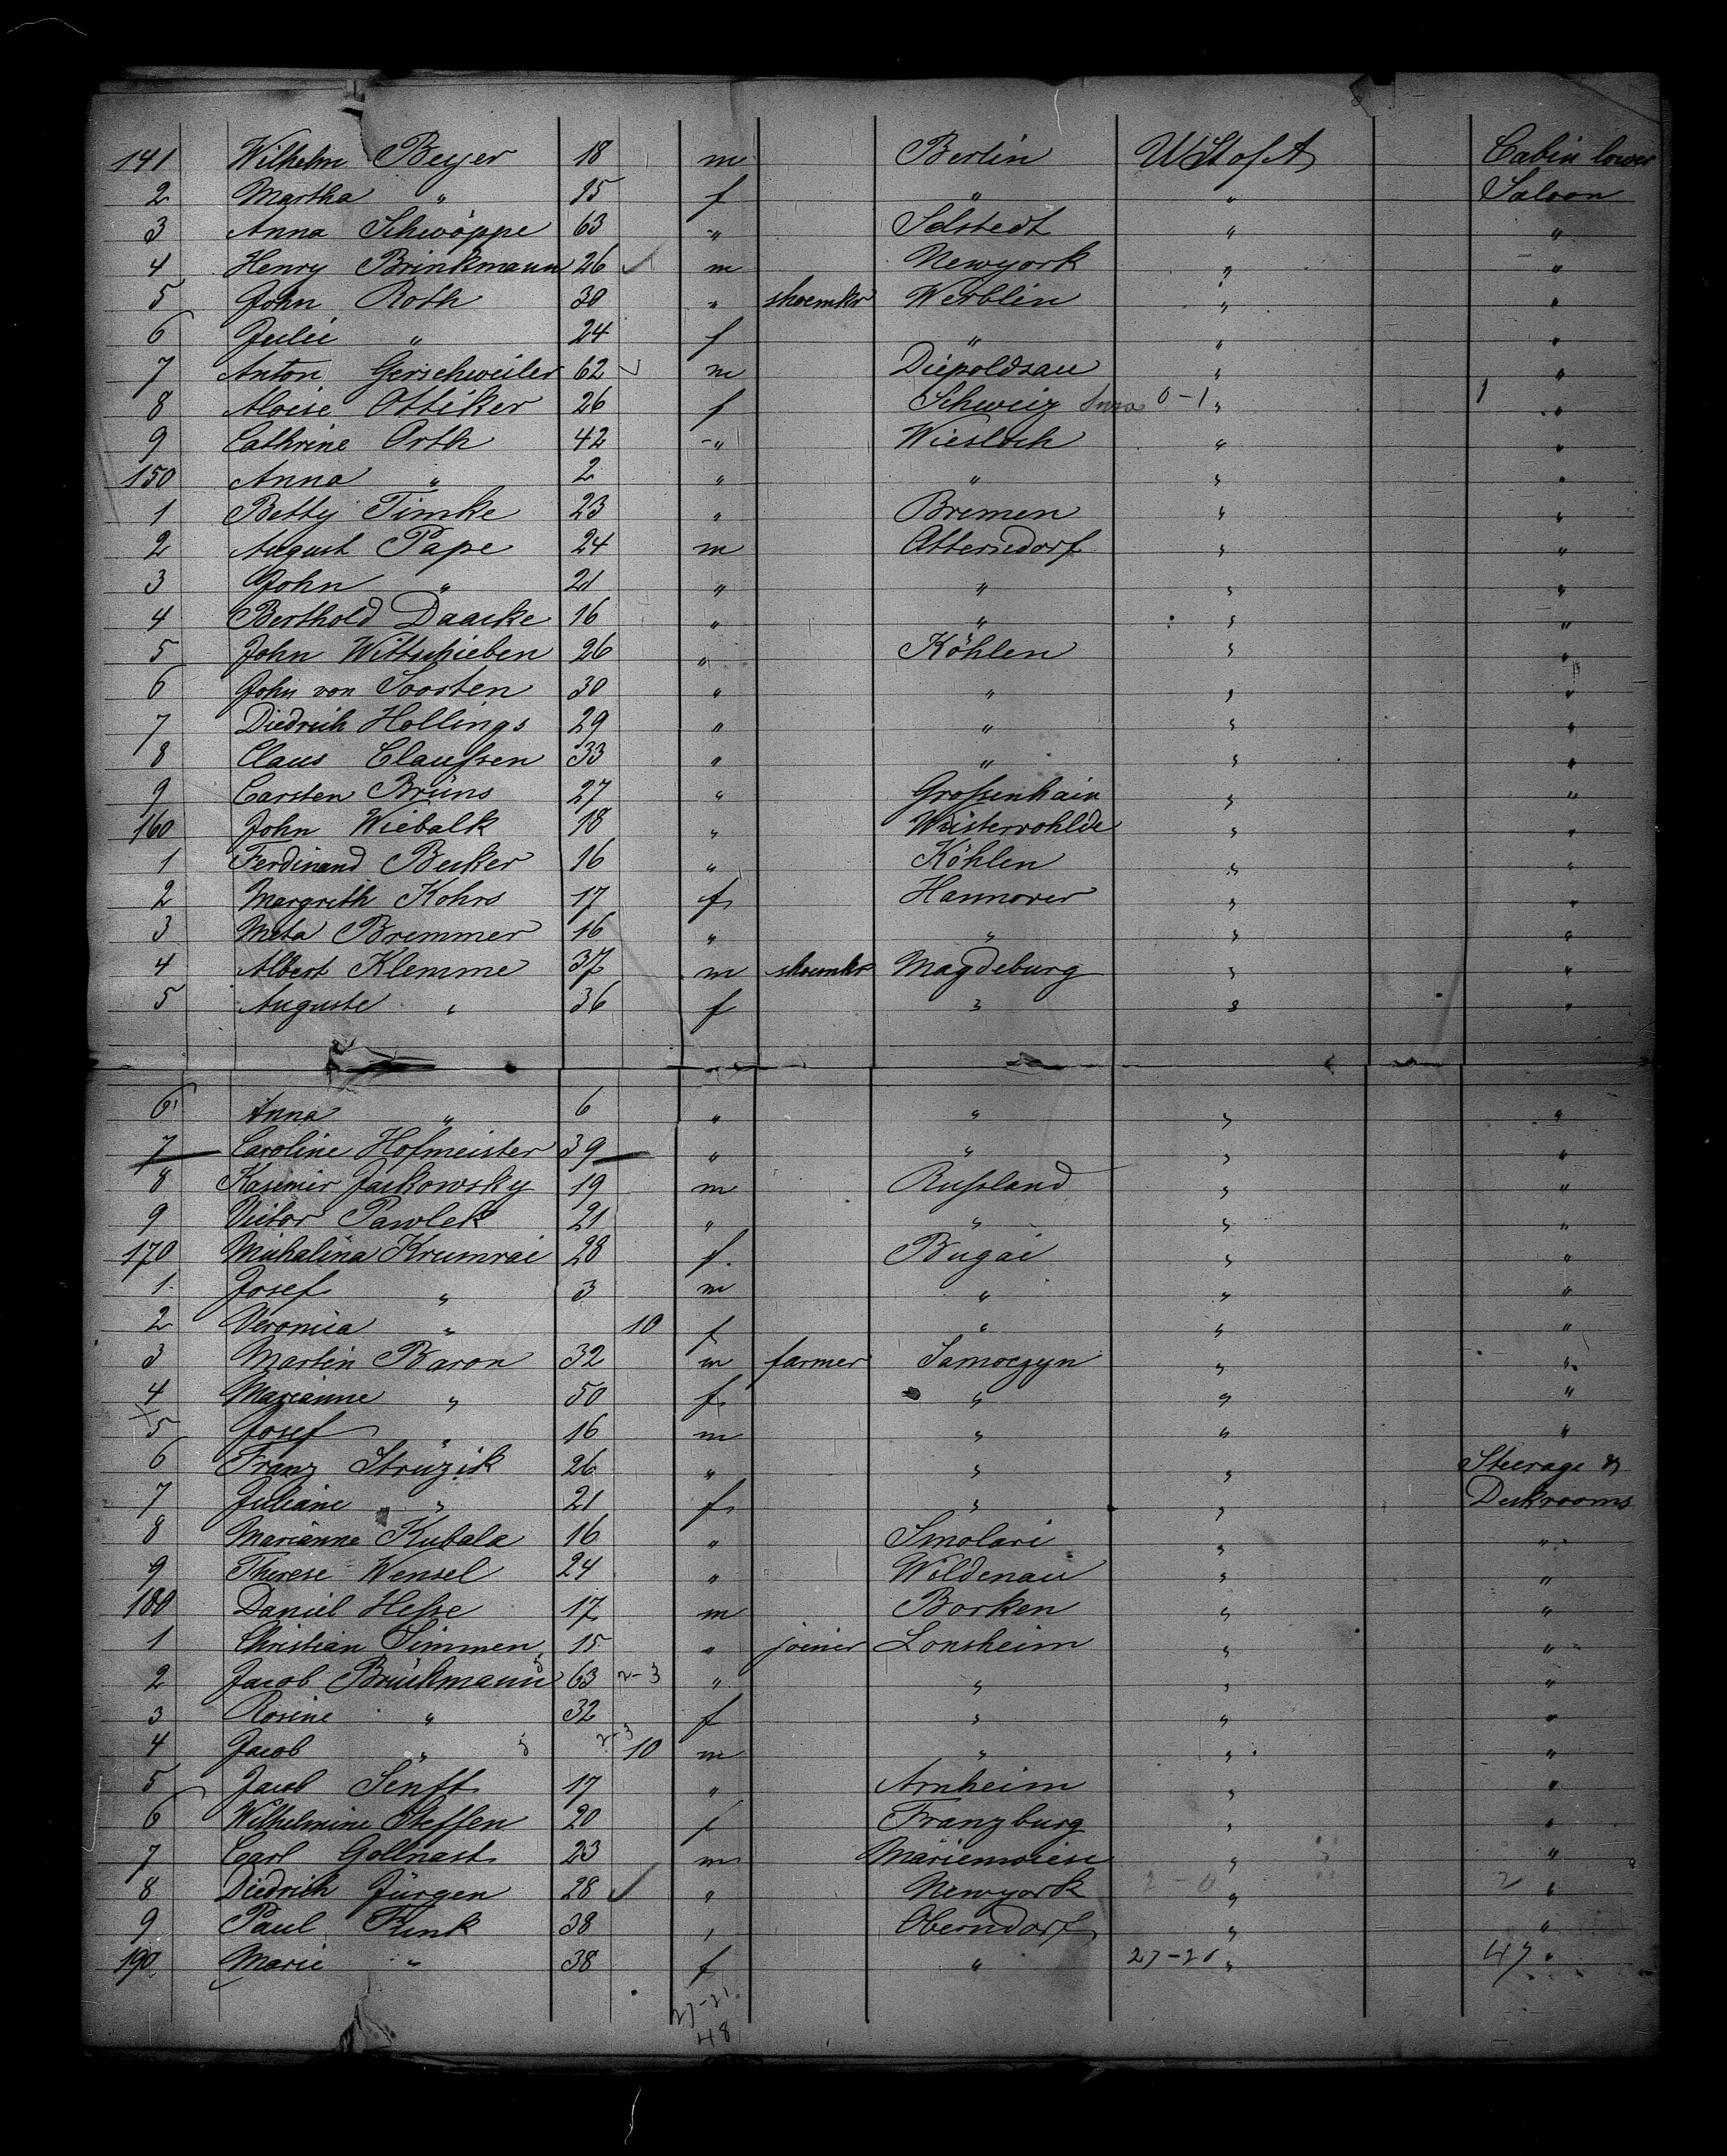 141 Wilhelm Beyer 18 m Berlin U St of A Cabin lower
2 Martha " 15 f " " Saloon
3 Anna Schwöppe 63 " Selstedt " "
4 Henry Brinkmann 26 ✓ m Newyork " "
5 John Roth 30 " shoemkr Werblin " "
6 Julie " 24 f " " "
7 Anton Gerschweiler 62 ✓ m Diepoldsau " "
8 Aloise Ottiker 26 f Schweiz 0-1 " 1 "
9 Cathrine Orth 42 " Wiesloch " "
150 Anna " 2 " " " "
1 Betty Timke 23 " Bremen " "
2 August Pape 24 m Otterndorf " "
3 John " 21 " " " "
4 Berthold Daacke 16 " " " "
5 John Wittschieben 26 " Köhlen " "
6 John von Soosten 30 " " " "
7 Diedrich Hollings 29 " " " "
8 Claus Claussen 33 " " " "
9 Carsten Brüns 27 " Grossenhain " "
160 John Wiebalk 18 " Wüsterwohlde " "
1 Ferdinand Becker 16 " Köhlen " "
2 Margreth Kohrs 17 f Hannover " "
3 Meta Bremmer 16 " " " "
4 Albert Klemme 37 m shoemkr Magdeburg " "
5 Auguste " 36 f " " "
6 Anna " 6 " " " "
7 Caroline Hofmeister 39 " " " "
8 Kasimir Jaskowsky 19 m Russland " "
9 Victor Pawlek 21 " " " "
170 Michalina Krumrai 28 f Bugai " "
1 Josef " 3 m " " "
2 Veronica " 10 f " " "
3 Martin Baron 32 m farmer Samoczyn " "
4 Marianne " 50 f " " "
5 Josef " 16 m " " "
6 Franz Struzik 26 " " " Steerage &
7 Juliane " 21 f " " Deckrooms
8 Marianne Kubala 16 " Smolari " "
9 Therese Wensel 24 " Wildenau " "
180 Daniel Hesse 17 m Borken " "
1 Christian Simmen 15 " joiner Lonsheim " "
2 Jacob Brückmann 63 2-3 " " " "
3 Rosine " 32 f " " "
4 Jacob " 2-3 10 m " " "
5 Jacob Senft 17 " Arnheim " "
6 Wilhelmine Steffen 20 f Franzburg " "
7 Carl Gollnast 23 m Marienwiese " "
8 Diedrich Jürgen 28 ✓ " Newyork 2-0 " 2 "
9 Paul Fink 38 " Oberndorf " "
190 Marie " 38 f " 27-20 " 47 "
27-21
48